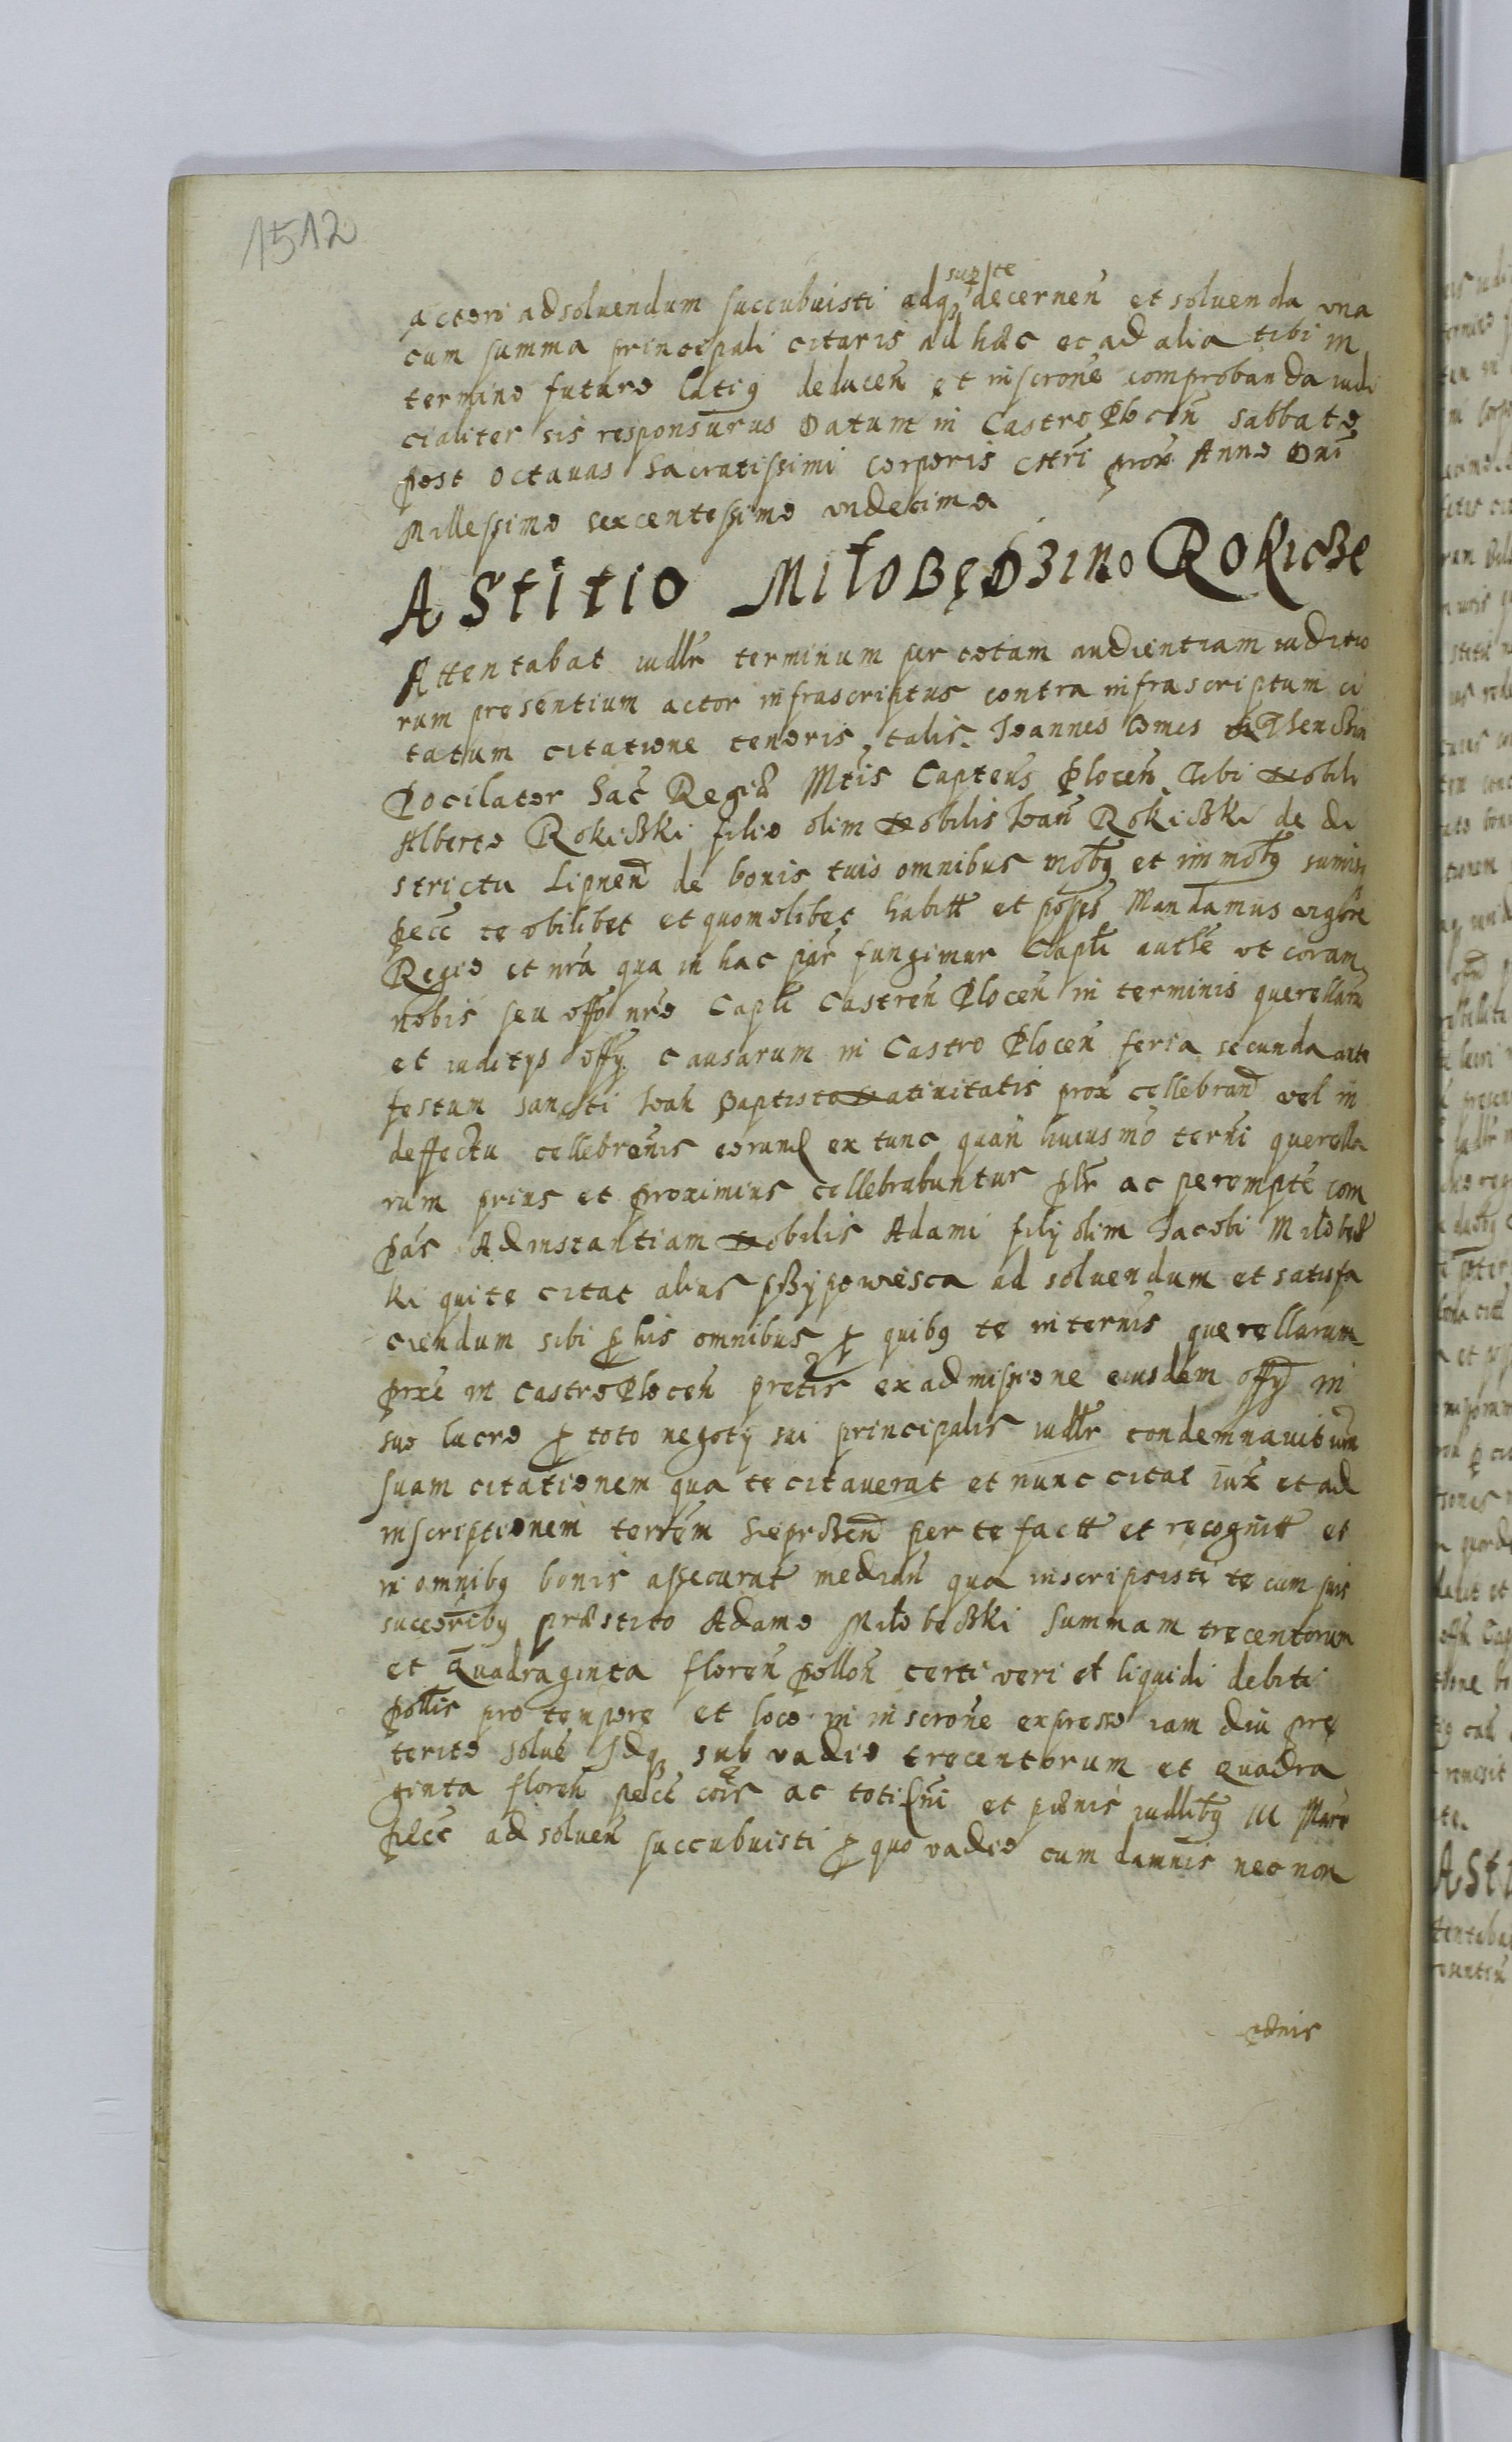 1512
supte
actori ad soluendum succubuisti adq3 decernen et soluenda una
cum summa principali citaris ad hæc et ad alia tibi in
termino futuro latig deducen et inscrone comprobanda iudi
cialiter sis responsurus Datum in Castro Plocen sabbato
post octauas Sacratissimi corporis Chri prox Anno Dni
Millessimo sexcentessimo undecimo
Astitio Miłobędzino Rokicze
Attentabat iudlr terminum per totam audientiam iuditio
rum presentium actor infrascriptus contra infrascriptum ci
tatum citatione tenoris talis. Ioannes Comes
Pocilator Sac Regiæ Mtis Capteus Plocen Tibi Nobili
Alberto Rokiczki filio olim Nobilis Ioan Rokiczki de di
strictu Lipnen de bonis tuis omnibus mobg et immobg sumisq
pecc te obilibet et quomolibet habitt et posses Mandamus vigore
Regio et nra qua in hac par fungimur Capli authe ut coram
nobis seu offo nro Capli Castren Plocen in terminis querellaru
et iuditys offy causarum in Castro Plocen feria secunda ante
festum sancti Ioan Baptista Natiuitatis prox cellebrand vel in
deffectu cellebronis eorund ex tunc quan huiusmo terni querella
rum prius et proximius cellebrabuntur plr ac perempte com
pas Ad instantiam Nobilis Adami fily olim Iacobi Miłobed
ki qui te citat alius przypowiesca ad soluendum et satisfa
ciendum sibi p his omnibus p quibg te in ternis querellarum
prxe in Castro Plocen pretis ex admissione eiusdem offy in
suo lucro p toto negoty sui principalis iudlr condemnauit iux
suam citationem qua te citauerat et nunc citat iux et ad
inscriptionem terrem Sieprczen per te factt et recognitt et
in omnibg bonis assecurat median qua inscripsisti te cum suis
succoribg præstito Adamo Miłobeczki Summam trecentorum
et Quadraginta floren pollon certi veri et liquidi debiti
pollis pro tempore et loco in inscrone expresso iam diu pre
terito solue Idq3 sub vadio trecentorum et Quadra
ginta floren pecc cois ac toti dni et pænis iudlibg III Marc
pecc ad soluen succubuisti p quo vadio cum damnis nec non